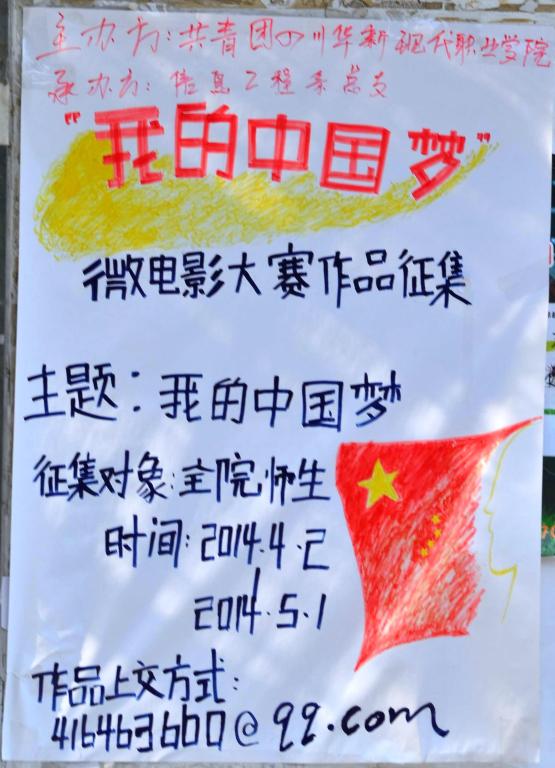 主办方:共青团四川华新现代职业学院
承办方:信息工程系总支
“我的中国梦”
微电影大赛作品征集
主题:我的中国梦
征集对象:全院师生
时间:2014.4.2
2014.5.1
作品上交方式:
416463600@qq.com